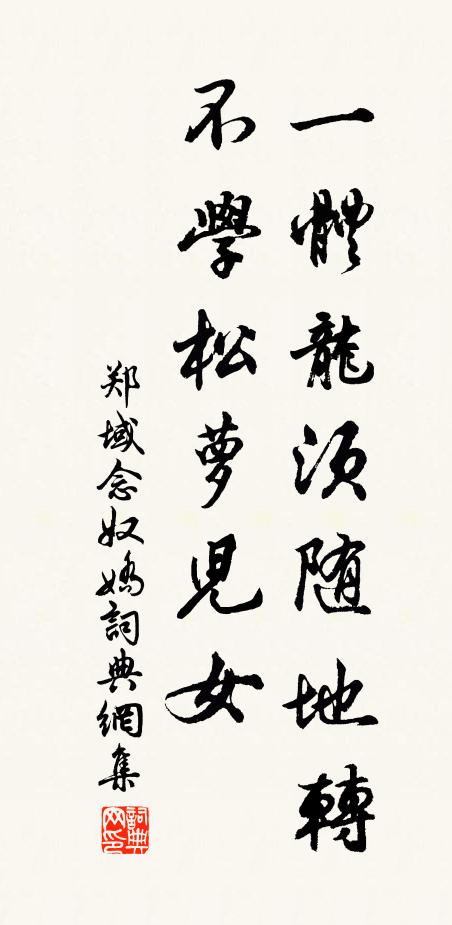 一體龍須随地轉
不學松夢兒女
郑域念奴嬌詞典網集
詞典網印